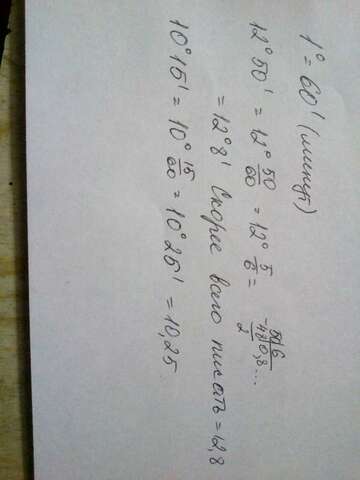 1° = 60' (минут)
12° 50' = 12° 50/60 = 12° 5/6 =
50 | 6
-48 | 0,8...
2
= 12° 8' Скорее всего писать = 12,8
10° 15' = 10° 15/60 = 10° 25' = 10,25